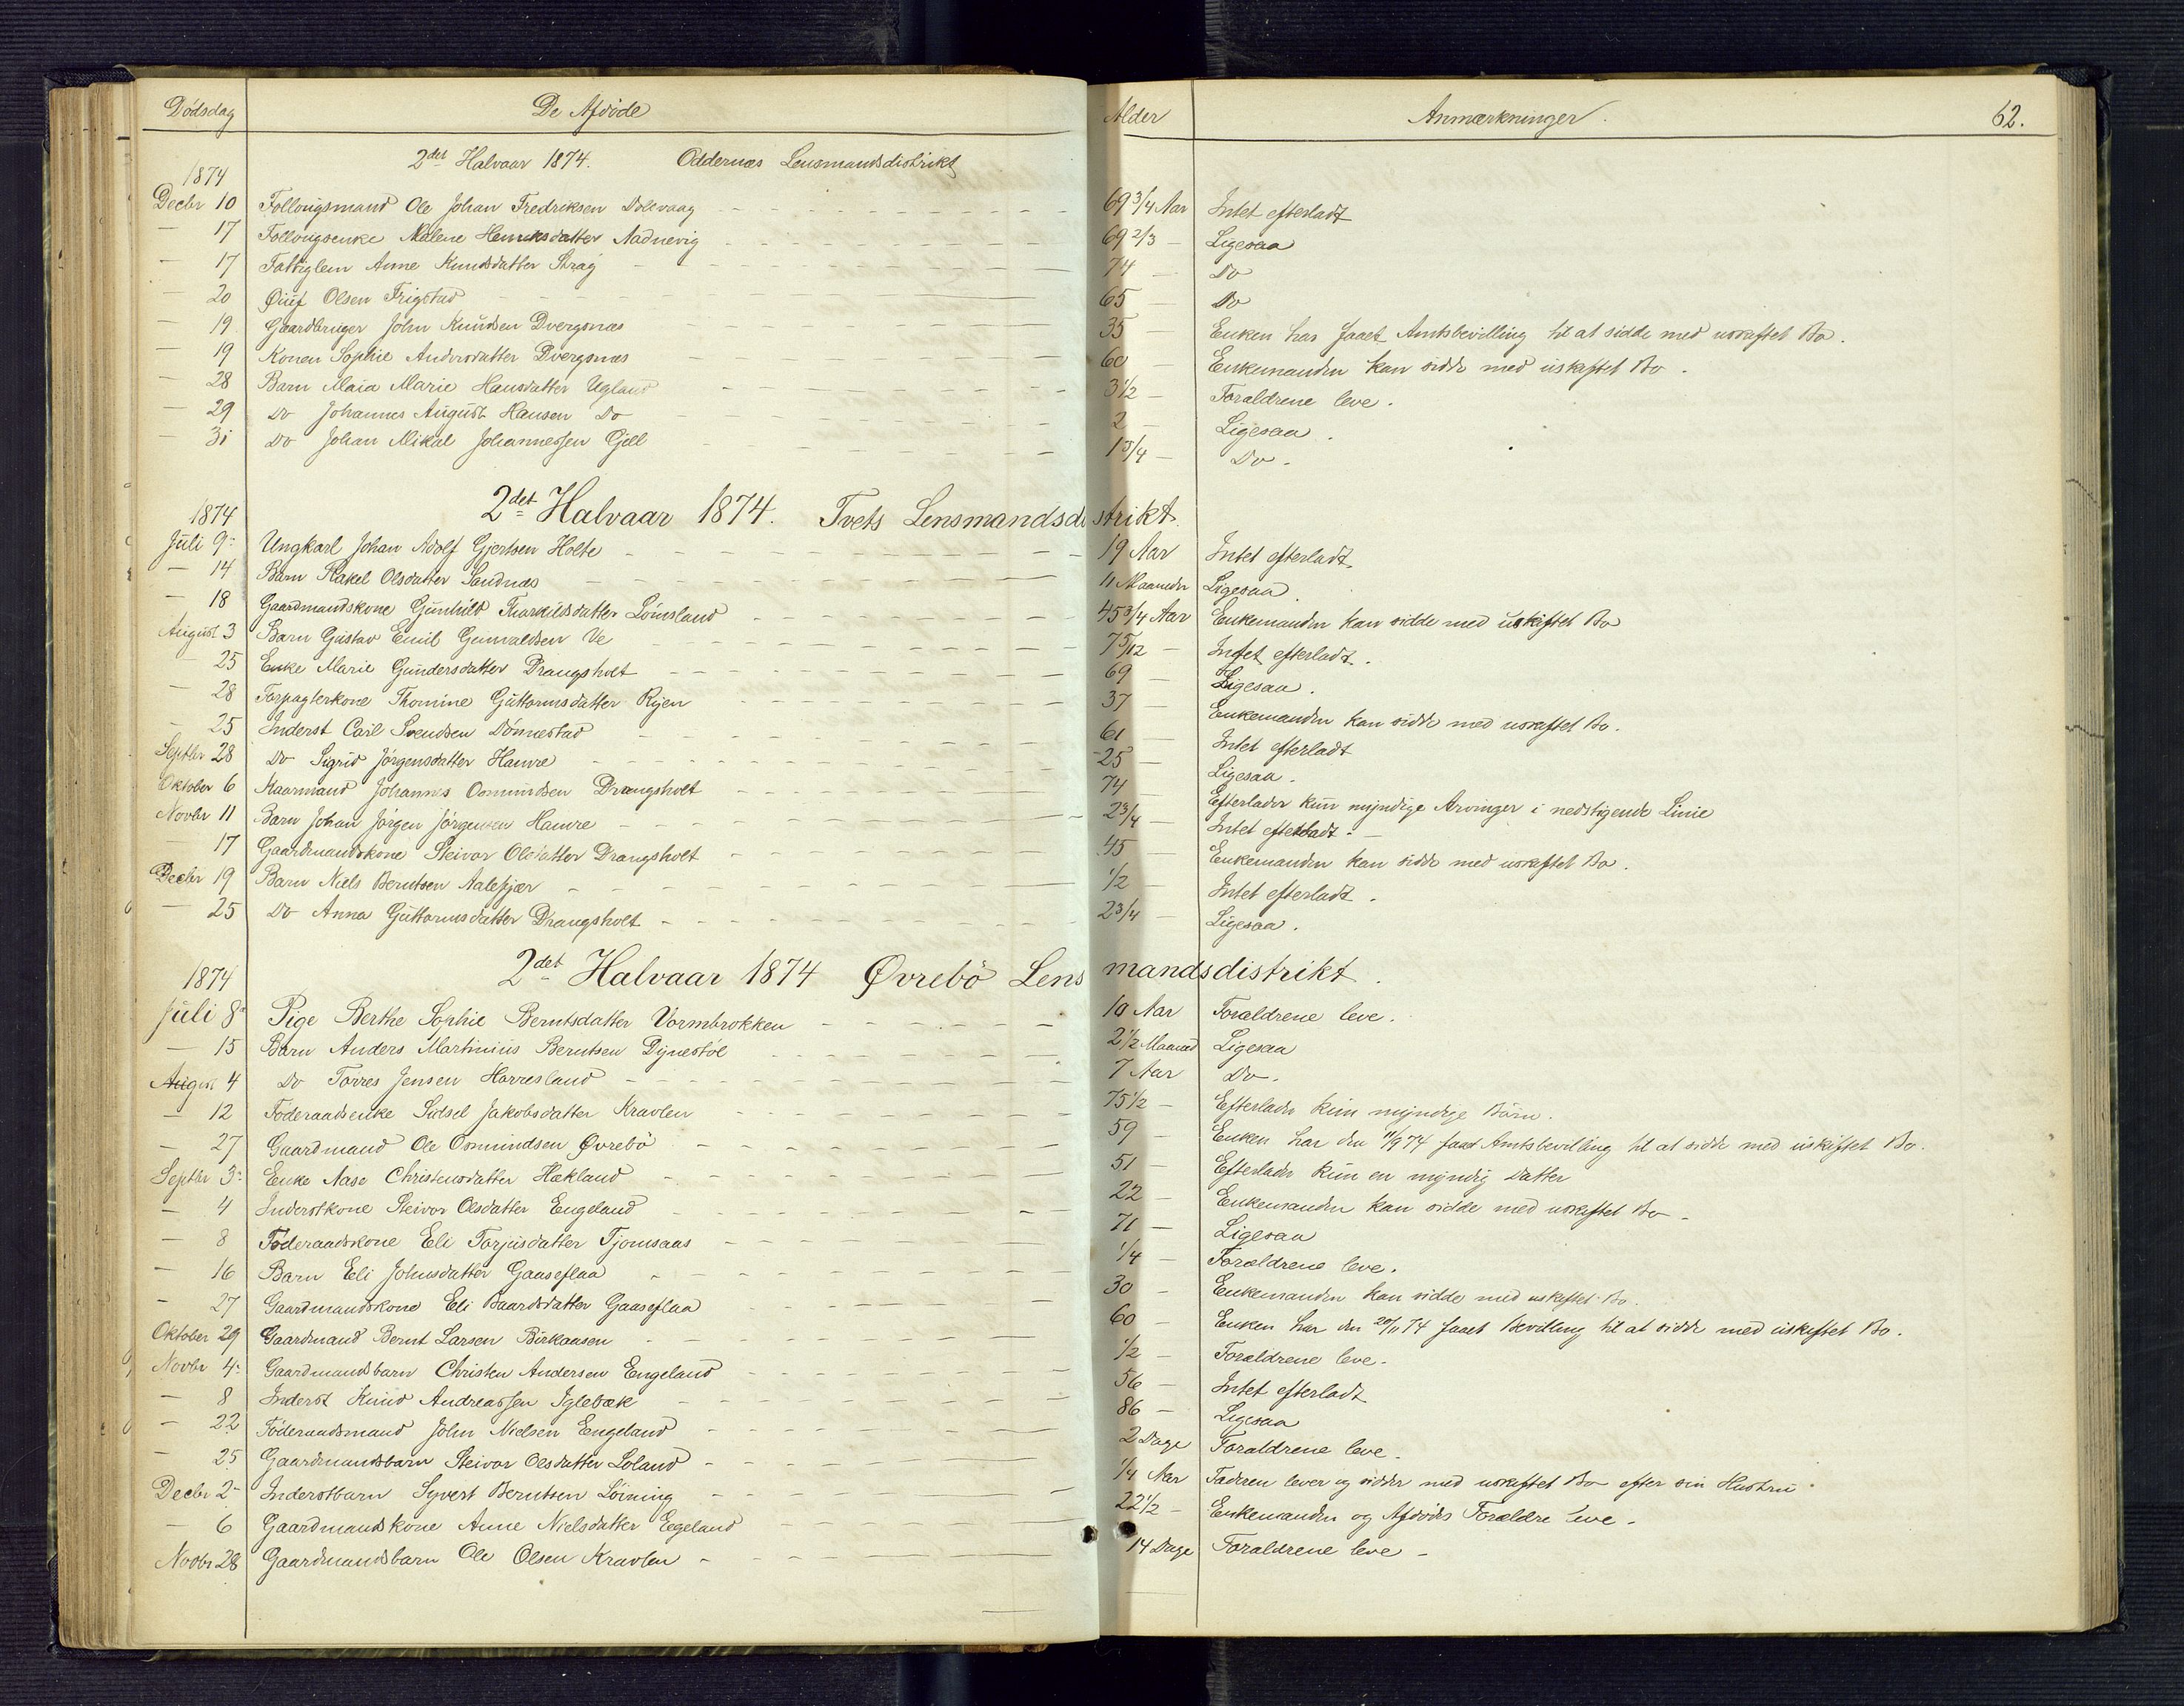 Dödsdag De Afdöde Alder Anmærkninger. 62.
1874 2det Halvaar 1874. Oddernæs Lensmandsdistrikt
Decbr 10 Follougsmand Ole Johan Fredriksen Dolevaag 69 3/4 Aar Intet efterladt
— 17 Follougsenke Malene Henriksdatter Aadnevig 69 2/3 — Ligesaa
— 17 Fattiglem Anne Knudsdatter Strag 74 — Do
— 20 Olsen Frigstad 65 — Do
— 19 Gaardbruger John Knudsen Dvergsnæs 35 — Enken har faaet Amtsbevilling til at sidde med uskiftet Bo.
— 19 Konen Sophie Andersdatter Dvergsnæs 60 — Enkemanden kan sidde med uskiftet Bo.
— 28 Barn Maia Marie Hansdatter Ugland 3 1/2 — Forældrene leve.
— 29 Do Johannes August Hansen Do 2 — Ligesaa.
— 31 Do Johan Mikal Johannessen Gjell 1 3/4 — Do.
1874 2det Halvaar 1874. Tvets Lensmandsdistrikt.
Juli 9 Ungkarl Johan Adolf Gjertsen Holte 19 Aar Intet efterladt.
— 14 Barn Rakel Olsdatter Sandnæs 11 Maaneder Ligesaa.
— 18 Gaardmandskone Gunhild Tharkildsdatter Lömsland 45 3/4 Aar Enkemanden kan sidde med uskiftet Bo
August 3 Barn Gustav Emil Gunvaldsen Ve 7 5/12 — Intet efterladt.
— 25 Enke Marie Gundersdatter Drangsholt 69 — Ligesaa.
— 28 Forpagterkone Thomine Guttormsdatter Ryen 37 — Enkemanden kan sidde med uskiftet Bo.
— 25 Inderst Carl Svendsen Dönnestad 61 — Intet efterladt
Septbr 28 Do Sigrid Jörgensdatter Hamre 25 — Ligesaa.
Oktober 6 Kaarmand Johannes Osmundsen Drangsholt 74 — Efterlader kun myndige Arvinger i nedstigende Linie
Novbr 11 Barn Johan Jörgen Jörgensen Hamre 2 3/4 — Intet efterladt. —
— 17 Gaardmandskone Steivor Olsdatter Drangsholt 45 — Enkemanden kan sidde med uskiftet Bo.
Decbr 19 Barn Niels Berntsen Aalefjær 1/2 — Intet efterladt.
— 25 Do Anna Guttormsdatter Drangsholt 2 3/4 — Ligesaa.
1874 2det Halvaar 1874 Øvrebö Lensmandsdistrikt.
Juli 8 Pige Berthe Sophie Berntsdatter Vormbrokken 10 Aar Forældrene leve.
— 15 Barn Anders Martinius Berntsen Dynestöl 2 1/2 Maaned Ligesaa
August 4 Do Torres Jensen Horresland 7 Aar Do.
— 12 Föderaadsenke Sidsel Jakobsdatter Kravlen 75 1/2 — Efterlader kun myndige Börn.
— 27 Gaardmand Ole Osmundsen Øvrebö 59 — Enken har den 11/9 74 faaet Amtsbevilling til at sidde med uskiftet Bo.
Septbr 3 Enke Aase Christensdatter Hækland 51 — Efterlader kun en myndig Datter
— 4 Inderstkone Steivor Olsdatter Engeland 22 — Enkemanden kan sidde med uskiftet Bo —
— 8 Föderaadskone Eli Torjusdatter Tjomsaas 71 — Ligesaa
— 16 Barn Eli Johnsdatter Gaaseflaa 1/4 — Forældrene leve.
— 27 Gaardmandskone Eli Baardsdatter Gaaseflaa 30 — Enkemanden kan sidde med uskiftet Bo.
Oktober 29 Gaardmand Bernt Larsen Birkaasen 60 — Enken har den 20/11 74 faaet Bevilling til at sidde med uskiftet Bo.
Novbr 4 Gaardmandsbarn Christen Andersen Engeland 1/2 — Forældrene leve.
— 8 Inderst Knud Andreassen Iglebæk 56 — Intet efterladt
— 22 Föderaadsmand John Nielsen Engeland 86 — Ligesaa
— 25 Gaardmandsbarn Steivor Olsdatter Loland 2 Dage Forældrene leve.
Decbr 2 Inderstbarn Syvert Berntsen Löining 1/4 Aar Faderen lever og sidder med uskiftet Bo efter sin Hustru
— 6 Gaardmandskone Anne Nielsdatter Eegeland 22 1/2 — Enkemanden og Afdödes Forældre leve.
Novbr 28 Gaardmandsbarn Ole Olsen Kravlen 14 Dage Forældrene leve —